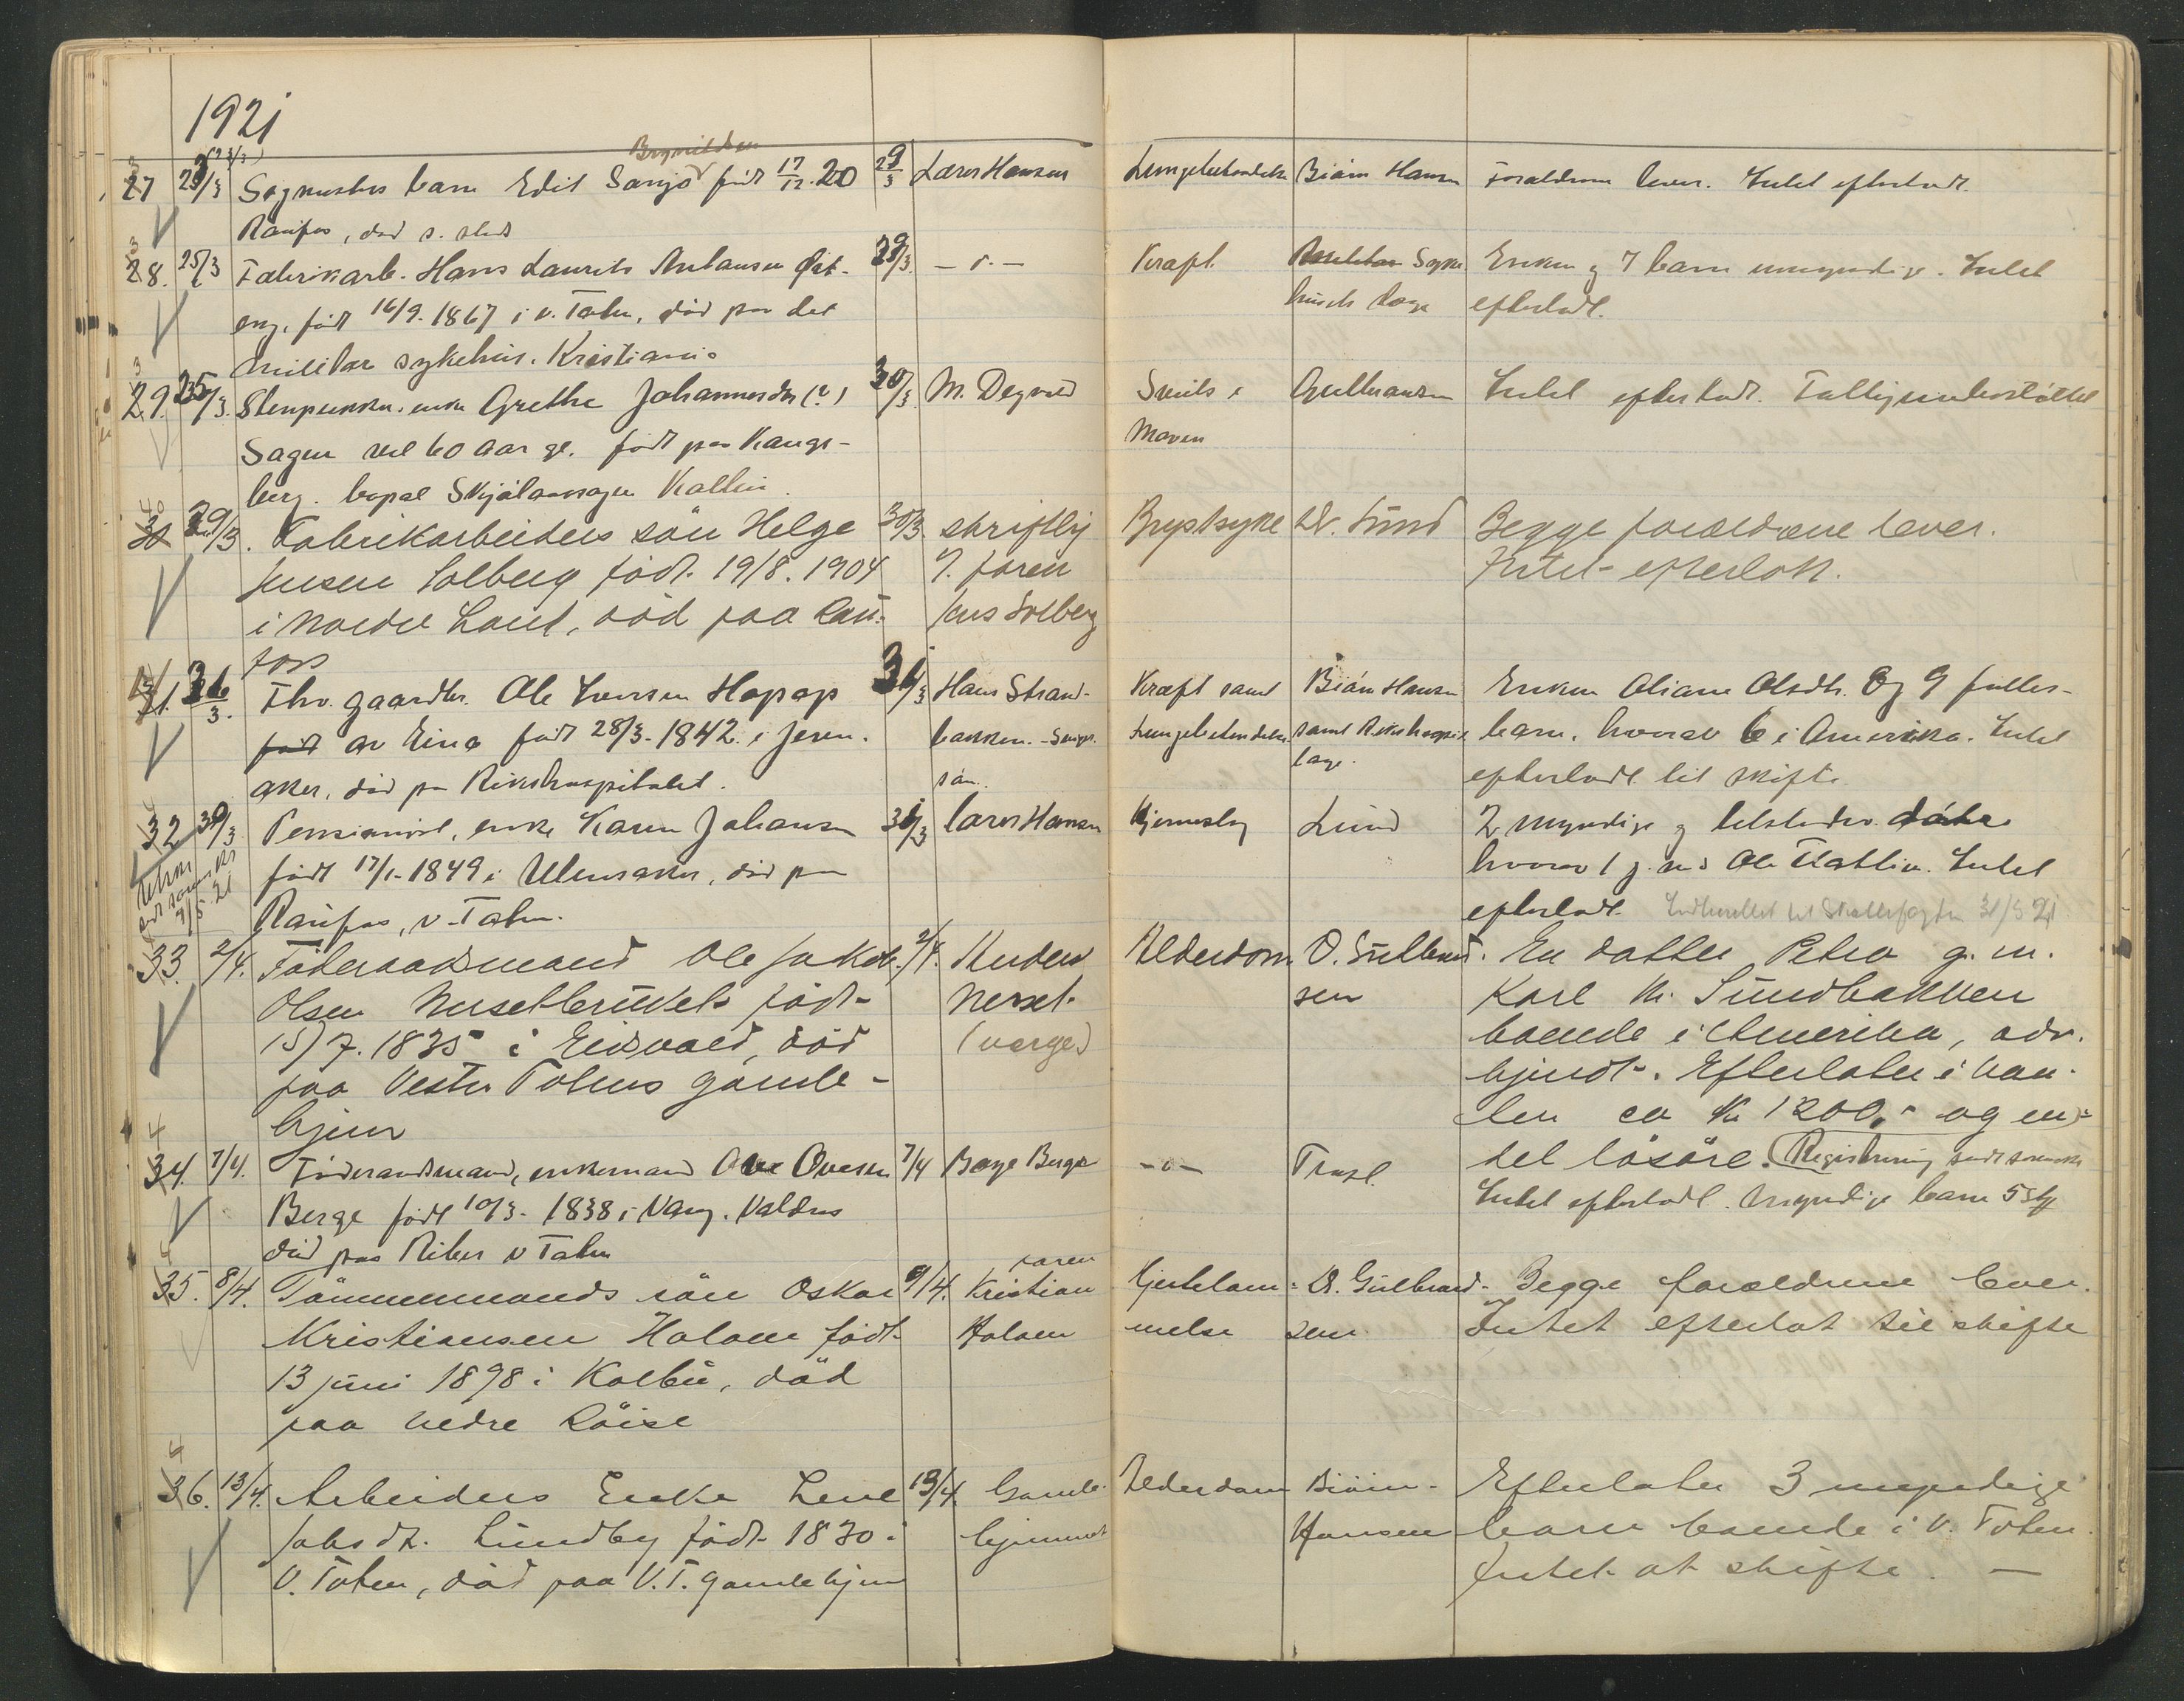 1921
27 29/3 barn Edit Sanjo født 17/12 20 29/3 Lars Hansen Bjørn Hansen Forældrene lever. Intet efterladt.
Raufos, død s. sted
28. 25/3 Fabrikarb. Hans Laurits Øst- 29/3. Kræft Syke Enken og 7 barn umyndige. Intet
eng, født 16/9-1867 i v. Toten, død paa det husets læge efterladt.
militær sykehus. Kristiania
29. 25/3. enke Grethe Johannesdtr (?) 30/3. M. Degvold i Gulbransen Intet efterladt. Fattigunderstøttet
Sagen vel 60 aar gl. født paa Kongs- Maven
berg. bopæl Kolbu
30 29/3. Fabrikarbeiders søn Helge 30/3. skriftlig Brystsyke Dr. Lund Begge forældrene lever.
Jensen Solberg født 19/8. 1904 v. faren Intet efterlatt.
i Nordre Land, død paa Rau- Jens Solberg
foss
31. 3. Fhv. gaardbr. Ole Hansen 31/3 Hans Strand- Kræft samt Bjørn Hansen Enken Oliane Olsdtr. og 9 fuller
født av Eina født 28/3-1842 i Jevn- bakken. Sviger- Lungebetendelse samt Rikshospit. barn, hvorav 6 i Amerika. Intet
aker, død paa Rikshospitalet. søn. læge. efterladt til skifte.
32 30/3 Pensionist, enke Karen Johansen 31/3 Lars Hansen Hjerneslag Lund 2 myndige og tilstedev. døtre
født 17/1-1849 i Ullensaker, død paa hvorav 1 g. m. Ole Flatlien. Intet
Raufos, v-Toten. efterladt. Indberettet til Skattefogden 31/3 21
9/5 21
33. 2/4. Føderaadsmand Ole Jakob 2/4. Anders Alderdom O. Gulbrand- En datter Petra g. m.
Olsen født Nerset sen Karl M. Sundbakken
15/7. 1835 i Eidsvold, død (verge) boende i Amerika, adr.
paa Vestre Totens gamle- kjendt. Efterlater i ban-
hjem ken ca Kr 1200,- og en
34. 7/4. Føderaadsmand, enkemand Ove Ovesen 7/4 Børge Berge -"- Trosl. del løsøre. Registrering
Berge født 10/3-1838 i Vang. Valdres Intet efterladt. Myndige barn 5 stk
død paa v Toten
35. 8/4. Tømmermands søn Oskar 9/4. faren Kristian Hjertelam- O. Gulbrand- Begge forældrene lever.
Kristiansen Holom født Holom melse sen. Intet efterlat til skifte
13 juni 1898 i Kolbu, død
paa nedre
36. 13/4. Arbeiders Enke Lene 13/4 Gamle- Alderdom Bjørn- Efterlater 3 myndige
Lundby født 1830 i hjemmet Hansen barn boende i V. Toten.
V. Toten, død paa V.T. gamlehjem Intet at skifte. —